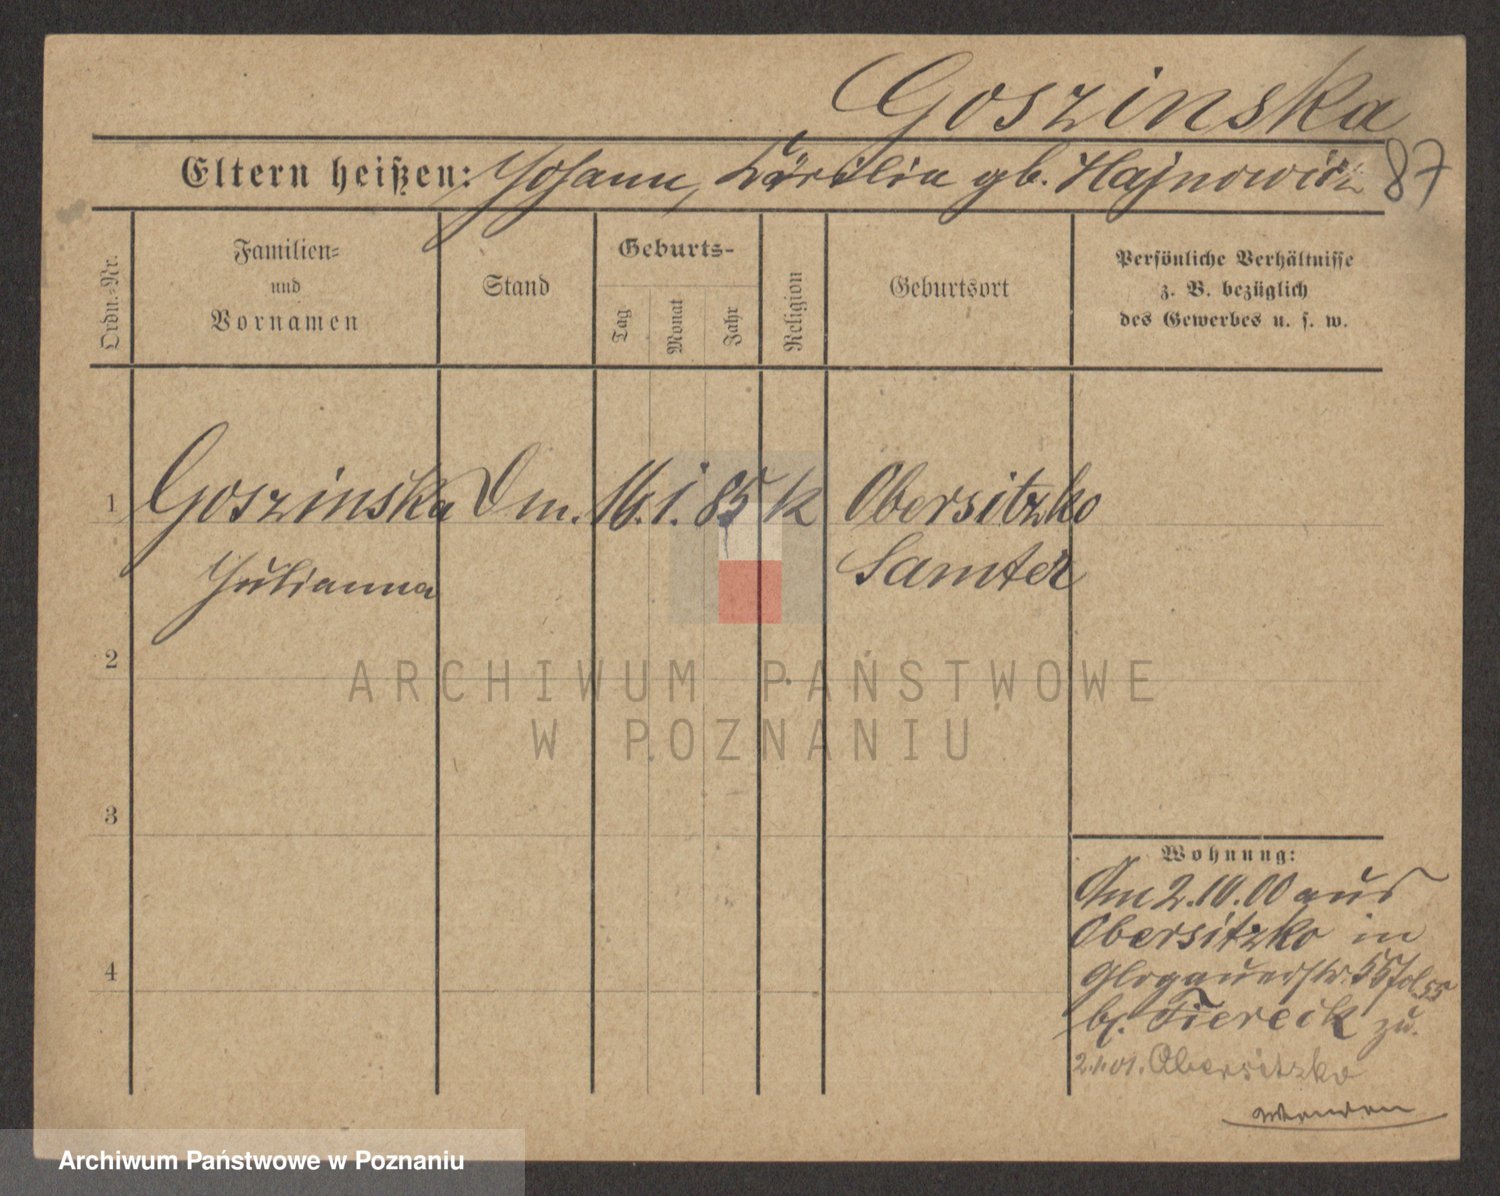 Goszinska
Eltern heißen: Johann, Cäcilia gb. Hajnowicz 87
Ordn.-Nr.
Familien-
und
Vornamen
Stand
Geburts-
Tag
Monat
Jahr
Religion
Geburtsort
Persönliche Verhältnisse
z. B. bezüglich
des Gewerbes u. s. w.
1 Goszinska Dm. 16. 1. 85 k Obersitzko
Julianna Samter
2
ARCHIWUM PAŃSTWOWE
W POZNANIU
3
Wohnung:
Am 2.10.00 aus
Obersitzko in
4
Glogauerstr. 55 fol 55
bei Tiereck zu.
2.1.01. Obersitzko
Archiwum Państwowe w Poznaniu